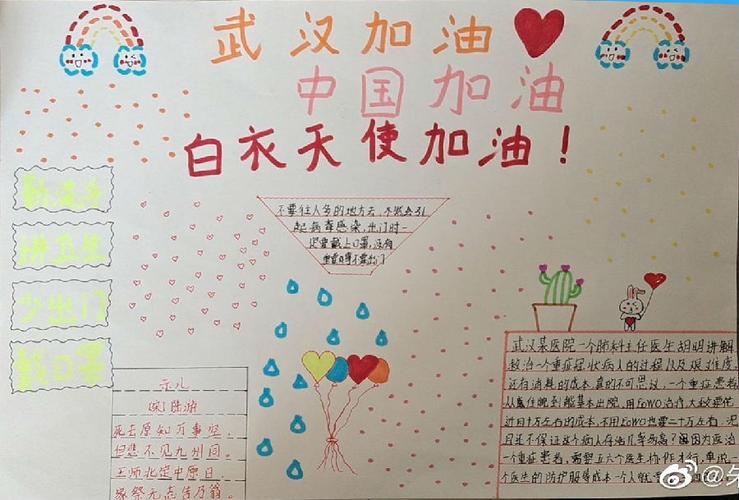 武汉加油
中国加油
白衣天使加油！
勤洗手
讲卫生
少出门
戴口罩
不要往人多的地方去，不然会引
起病毒感染，出门时一
定要戴上口罩，没有
重要的事不要出门
示儿
陆游
死去原知万事空，
但悲不见九州同。
王师北定中原日，
家祭无忘告乃翁。
武汉某医院一个肺科主任医生胡明讲解
救治一个重症冠状病人的过程以及艰难度，
还有消耗的成本真的不可思议，一个重症患者
从住院到能基本出院，用ECMO治疗，大校要花
近百十万左右的成本，不用ECMO也要二十万左右，况
且还不保证这个病人存活几率多高？因为医治
一个重症患者，需要五六个医生协作才行，单说一
医生的防护服等成本一个人就